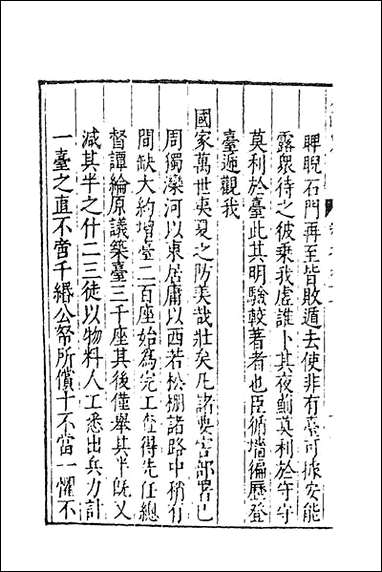 睥睨石門再至皆敗遁去使非有臺可據安能
露衆待之彼乗我虚誰卜其夜蓟莫利於守守
莫利於臺此其明驗較著者也臣循墻徧歷登
臺遍觀我
國家萬世夷夏之防美哉壮矣凡諸要害部署已
周獨灤河以東居庸以西若松棚諸路中稍有
間缺大約增臺二百座始爲完工查得先任總
督譚綸原議築臺三千座其後僅舉其半既又
減其半之什二三徒以物料人工悉出兵力計
一臺之直不啻千緡公帑所償十不當一懼不